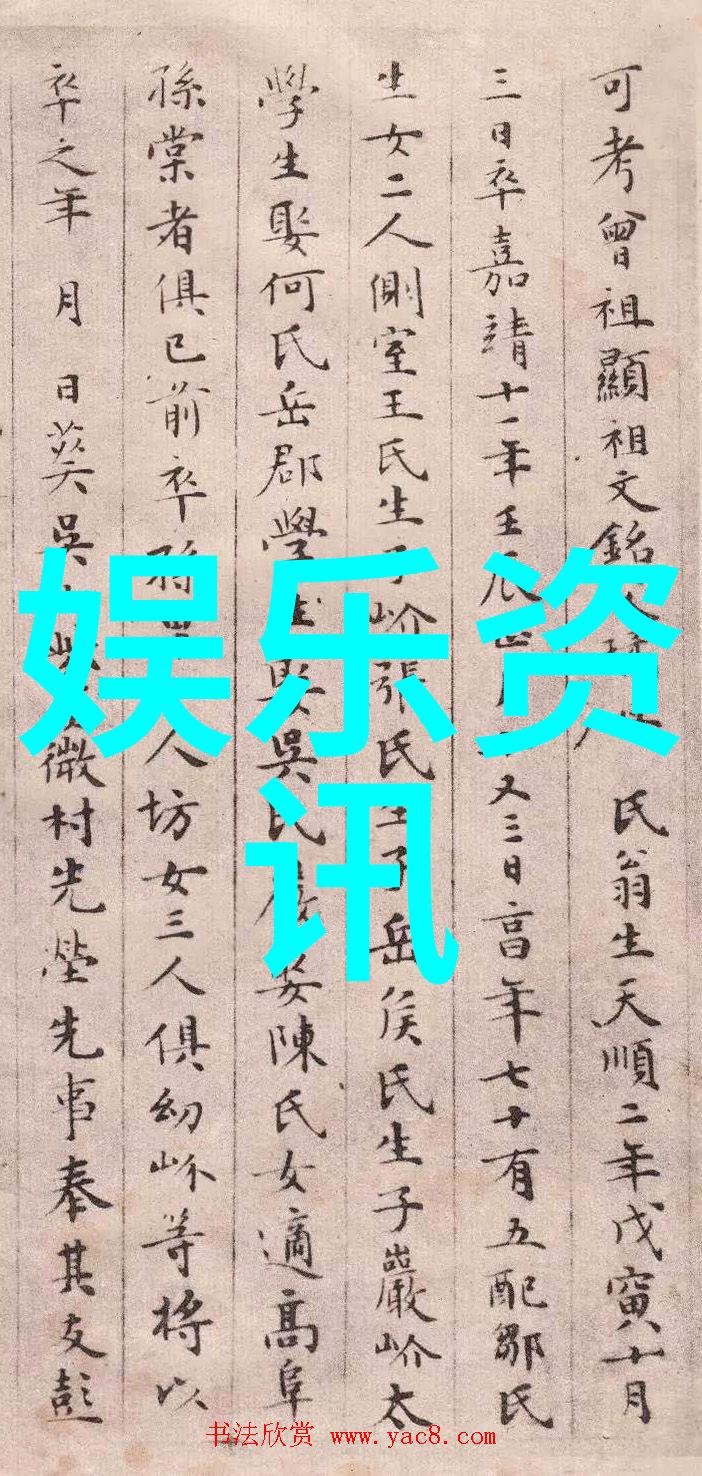 可考曾祖顯祖文銘 氏翁生天順二年戊寅十月
三日卒嘉靖十一年壬辰 又三日高年七十有五配鄒氏
生女二人側室王氏生子岕張氏生子岳侯氏生子巖岕太
學生娶何氏岳郡學生娶吳氏巖娶陳氏女適高阜
孫棠者俱已前卒孫男 人坊女三人俱幼岕等將以
卒之年 月 日葬吳 微村先塋先事奉其友彭
娱乐资
讯
书法欣赏 www.yac8.com